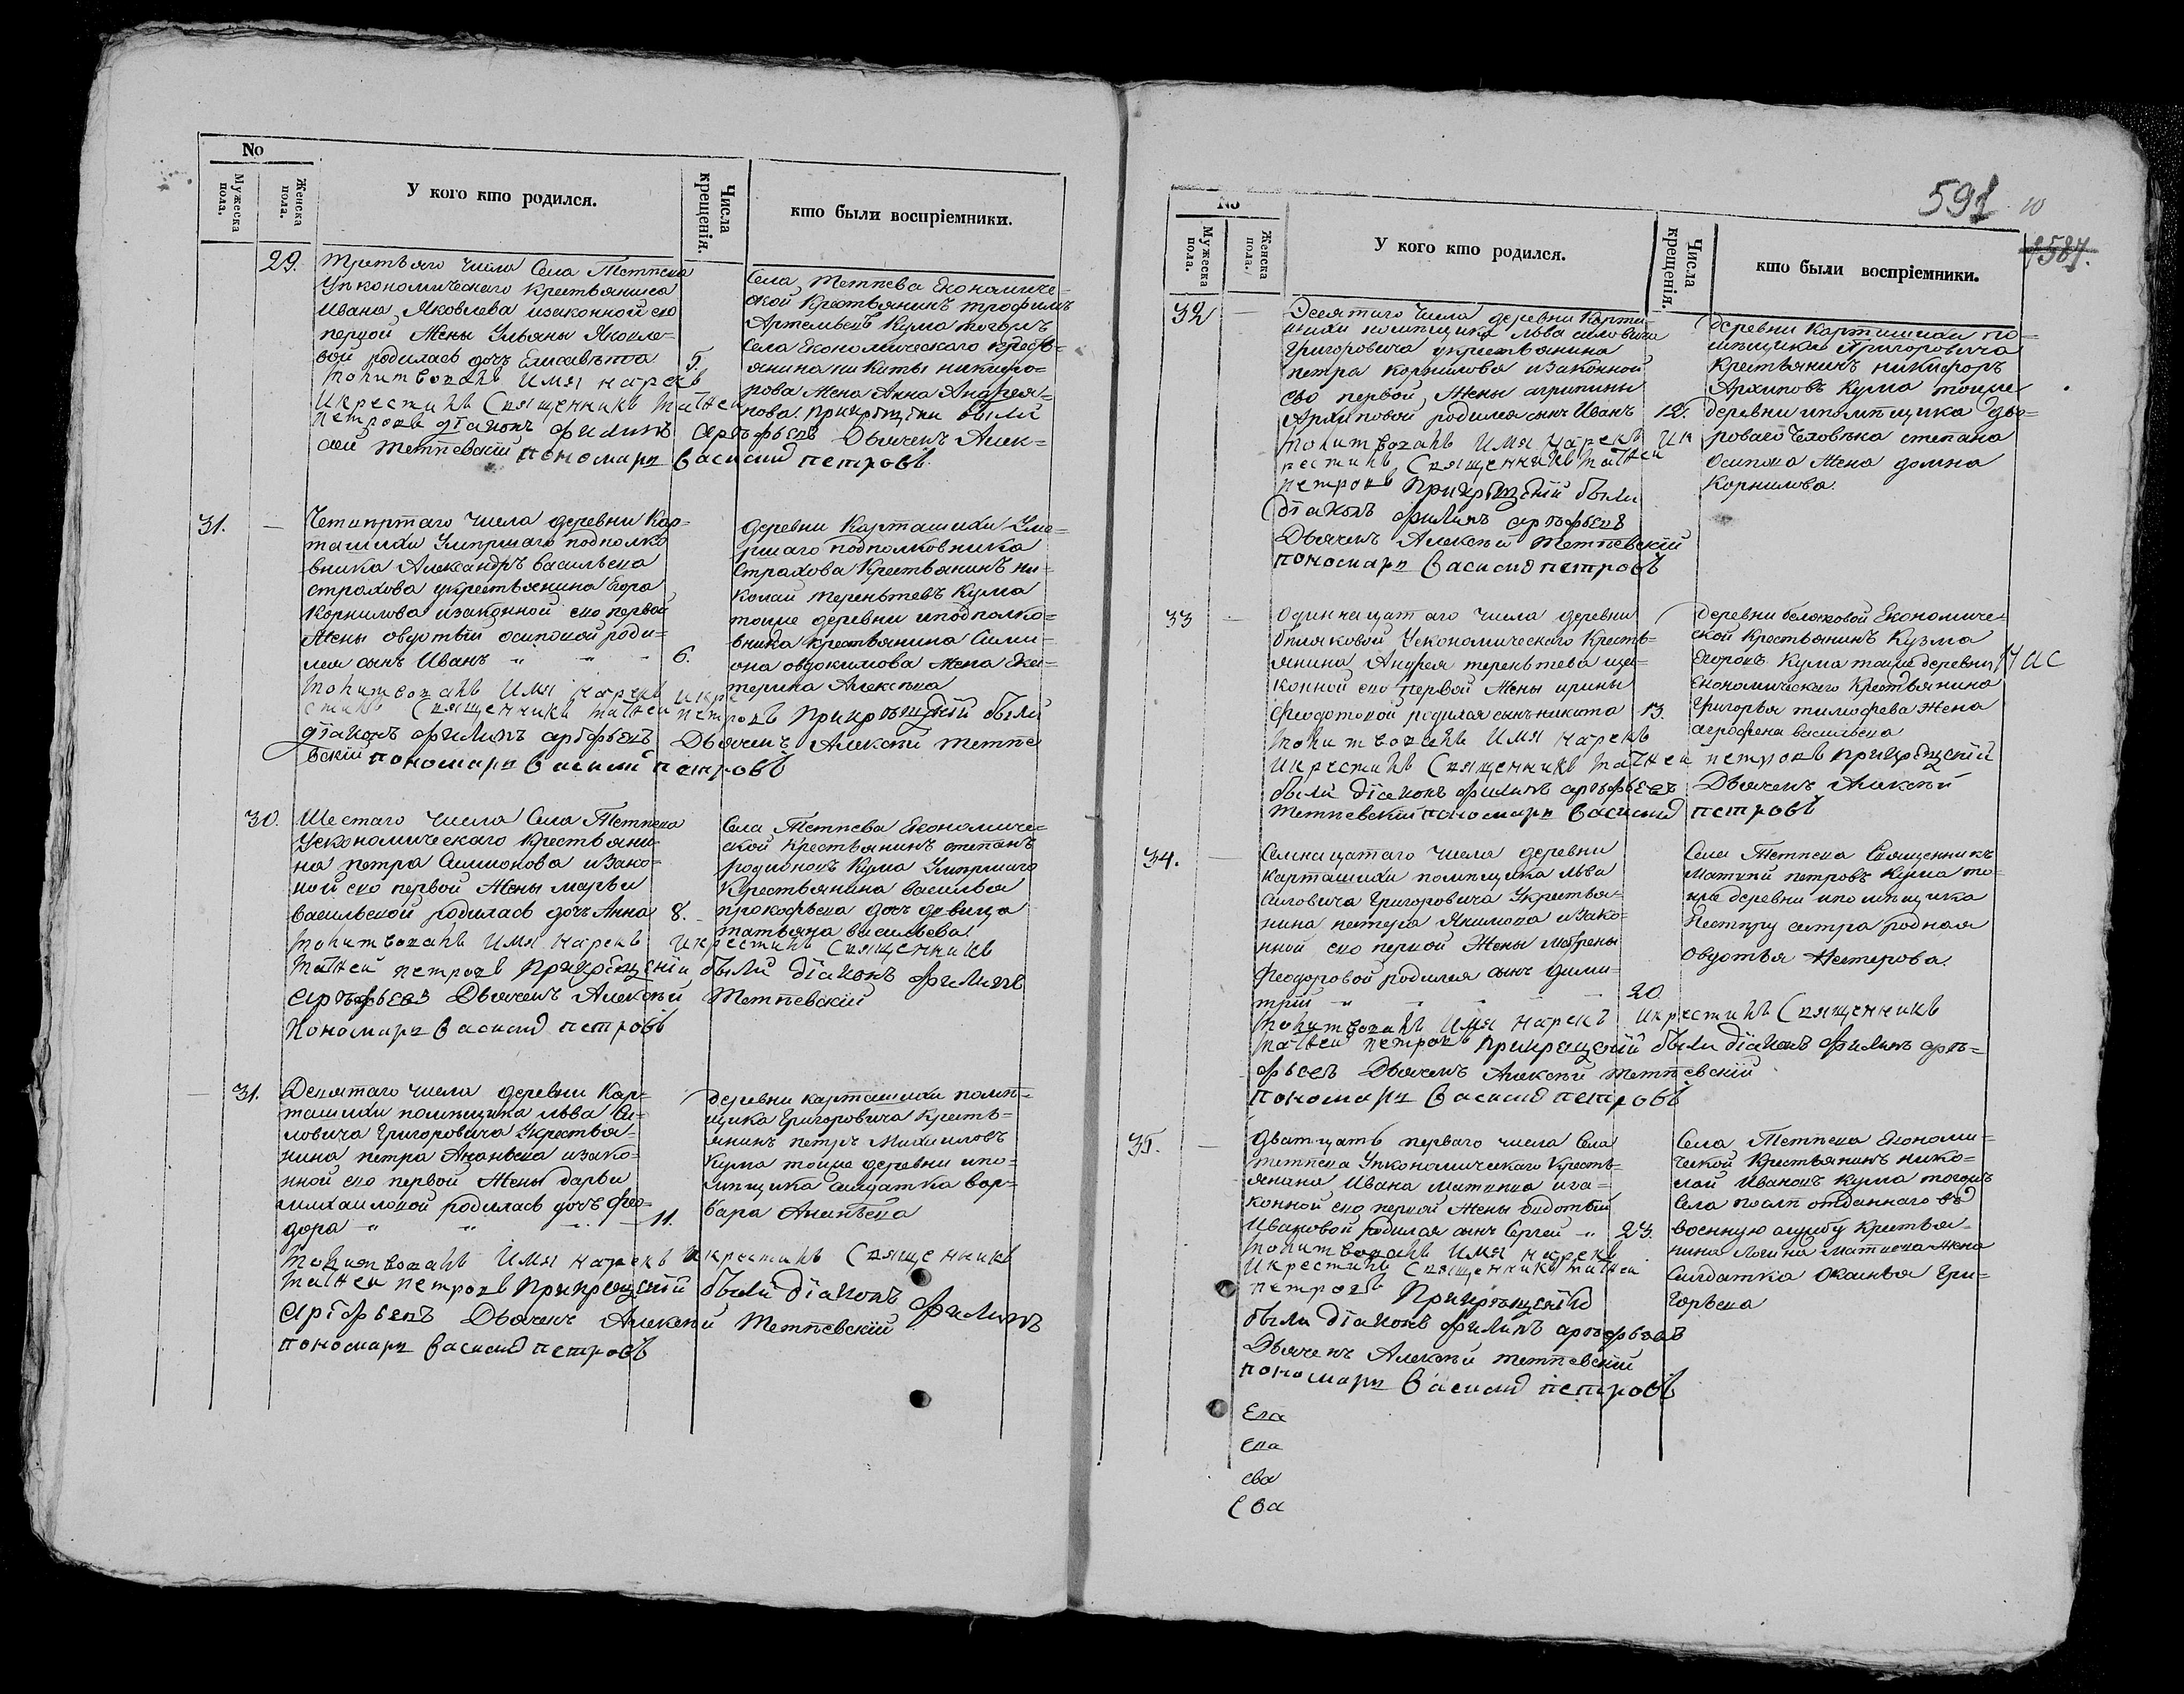 No
Мужеска пола.
Женска пола.
У кого кто родился.
Числа крещенія.
кто были воспріемники.
29.
третьяго числа Села Тетпева
Уикономическаго крестьянина
Ивана Яковлева изаконной его
первой Жены Ульяны Яковле-
вой родилась дочь Елисавѣта 5.
молитвовалъ имя нарекъ
икрестилъ Священникъ матвей
петровъ діаконъ филипъ арефьевъ Дьячекъ Алек-
сей тетпевскій пономарь василий петровъ
Села Тетпева Економиче-
ской Крестьянинъ трофимъ
Артемьевъ Кума тогожъ
села Економическаго крест-
янина никиты никифо-
рова Жена Анна Андрея-
нова. прикрещении были
31. —
Четвертаго числа деревни Кар-
ташихи Умершаго подполко
вника Александръ васильева
страхова укрестьянина Егора
Корнилова изаконной его первой
Жены овдотьи осиповой роди-
лся сынъ Иванъ „ „ - 6.
молитвовалъ имя нарекъ икре
стилъ Священникъ матвей петровъ прикрещении были
діаконъ филипъ арефьевъ Дьячекъ Алексей тетпе
вскій пономарь василий петровъ
деревни Карташихи Уме-
ршаго подполковника
страхова Крестьянинъ ни-
колай терентьевъ Кума
тоиже деревни иподполко-
вника крестьянина Сими-
она овдокимова Жена Ека-
терина Алексѣева
30.
Шестаго числа Села Тетпева
Уекономическаго Крестьяни-
на петра Симионова изако-
ной его первой Жены марьи
васильевой родилась дочь Анна 8.
молитвовалъ имя нарекъ икрестилъ Священникъ
матвей петровъ прикрещении были діаконъ филипъ
арефьевъ Дьячекъ Алексѣй Тетпевскій
пономарь василий петровъ
Села Тетпева Економиче-
ской Крестьянинъ степанъ
родионовъ Кума Умершаго
Крестьянина василья
прокофьева дочь девица
татьяна васильева
— 31.
Девятаго числа деревни Кар-
ташихи помѣщика льва Си-
ловича Григоровича Укрестья-
нина петра Ананьева изако-
нной его первой Жены дарьи
михаиловой родилась дочь фео-
дора „ „ „ - 11.
молитвовалъ имя нарекъ икрестилъ Священникъ
матвей петровъ прикрещеніи были діаконъ филипъ
арефьевъ Дьячекъ Алексѣй Тетпевскій
пономарь василий петровъ
деревни карташихи помѣ-
щика Григоровича Кресть-
янинъ петръ Михаиловъ
Кума тоиже деревни ипо-
мѣщика салдатка вар-
вара Ананьева
591 10
1584.
No
Мужеска пола.
Женска пола.
У кого кто родился.
Числа крещенія.
кто были воспріемники.
32 —
Десятаго числа деревни Карта-
шихи помѣщика льва силовича
Григоровича укрестьянина
петра корнилова изаконной
его первой Жены агрипины
Архиповой родился сынъ Иванъ 12.
молитвовалъ имя нарекъ ик
рестилъ Священникъ матвей
петровъ прикрещеніи были
діаконъ филипъ арефьевъ
Дьячекъ Алексѣй Тетпевскій
пономарь василий петровъ
деревни Карташихи по-
мѣщика Григоровича
Крестьянинъ никифоръ
Архиповъ Кума тоиже
деревни ипомѣщика дво-
роваго человѣка степана
Осипова Жена домна
Корнилова.
33 —
Одиннацатаго числа деревни
бѣляковой Уекономическаго Кресть-
янина Андрея терентьева иза-
конной его первой Жены ирины
Феодотовой родился сынъ никита 13.
молитвовалъ имя нарекъ
икрестилъ Священникъ матвей петровъ прикрещеніи
были діаконъ филипъ арефьевъ Дьячекъ Алексѣй
тетпевскій пономарь василий петровъ
деревни беляковой Економиче-
ской Крестьянинъ Кузма
Егоровъ Кума тоиже деревни
економическаго Крестьянина
Григорья тимофева Жена
агрофена васильева
34. —
Семнацатаго числа деревни
карташихи помѣщика льва
Силовича Григоровича Укрестья-
нина нестера Якимова изако-
нной его первой Жены матрены
Феодоровой родился сынъ дими-
трій „ - „ - — 20
молитвовалъ имя нарекъ икрестилъ Священникъ
матвей петровъ прикрещеніи были діаконъ филипъ аре-
фьевъ Дьячекъ Алексѣй тетпевскій
пономарь василий петровъ
Села Тетпева Священникъ
матвѣй петровъ Кума то-
иже деревни ипомѣщика
Нестеру сестра родная
Овдотья Нестерова.
35. —
Дватцать перваго числа Села
тетпева Уикономическаго Кресть-
янина Ивана матвѣева иза-
конной его первой Жены видотьи
Ивановой родился сынъ Сергей „ 23.
молитвовалъ имя нарекъ
икрестилъ Священникъ матвей
петровъ прикрещеніи
были діаконъ филипъ арефьевъ
Дьячекъ Алексѣй тетпевскій
пономарь василий петровъ
Села Тетпева Економи-
ческой Крестьянинъ нико-
лай Ивановъ кума тогожъ
Села послѣ отданнаго въ
военную службу Крестья-
нина логина матвѣева Жена
Салдатка Оксинья Гри-
горьева
Ева
ева
ева
Ева